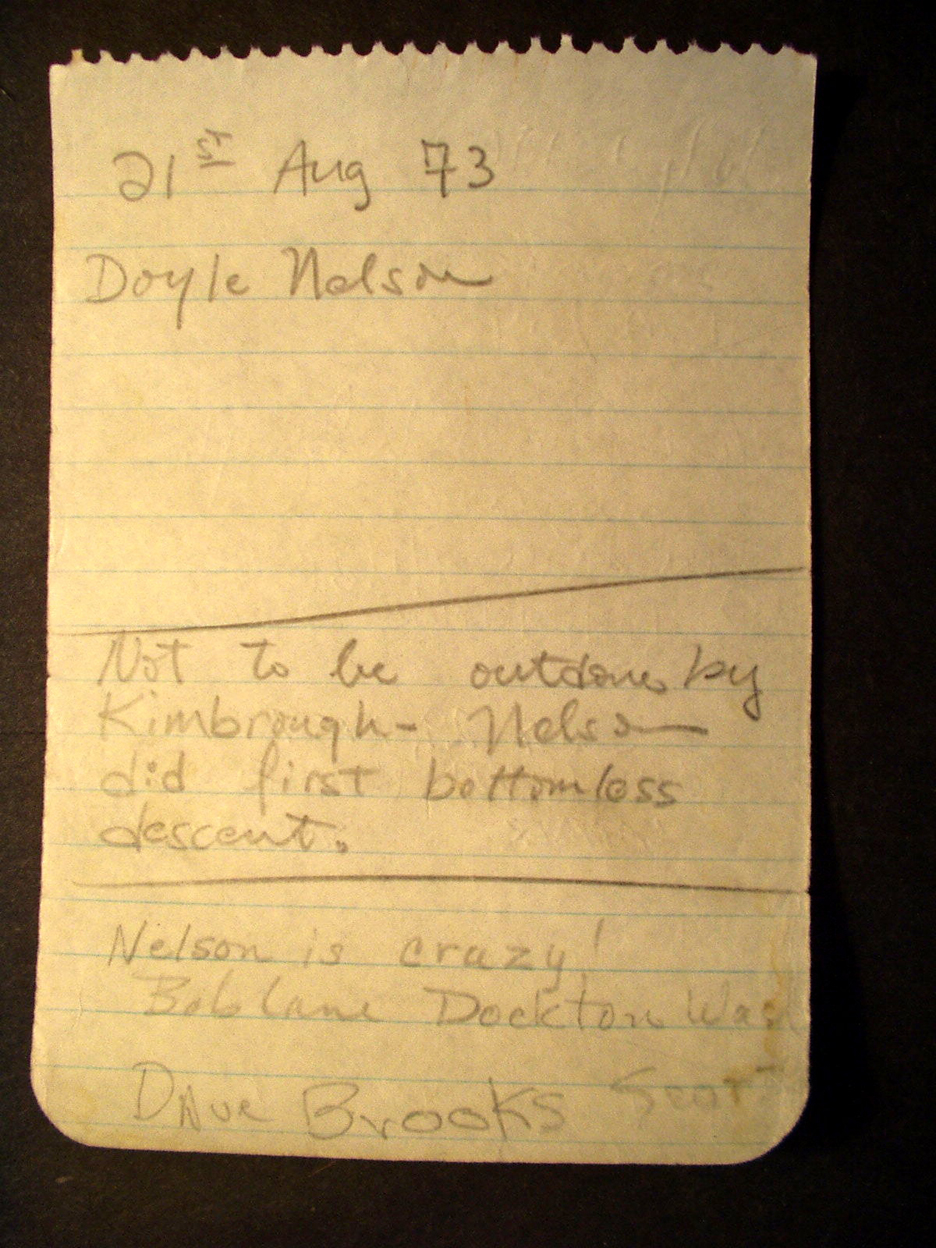 21st Aug 73
Doyle Nelson
Not to be outdone by
Kimbrough- Nelson
did first bottomless
descent.
Nelson is crazy!
Bob Lane Dockton Wash
Dave Brooks